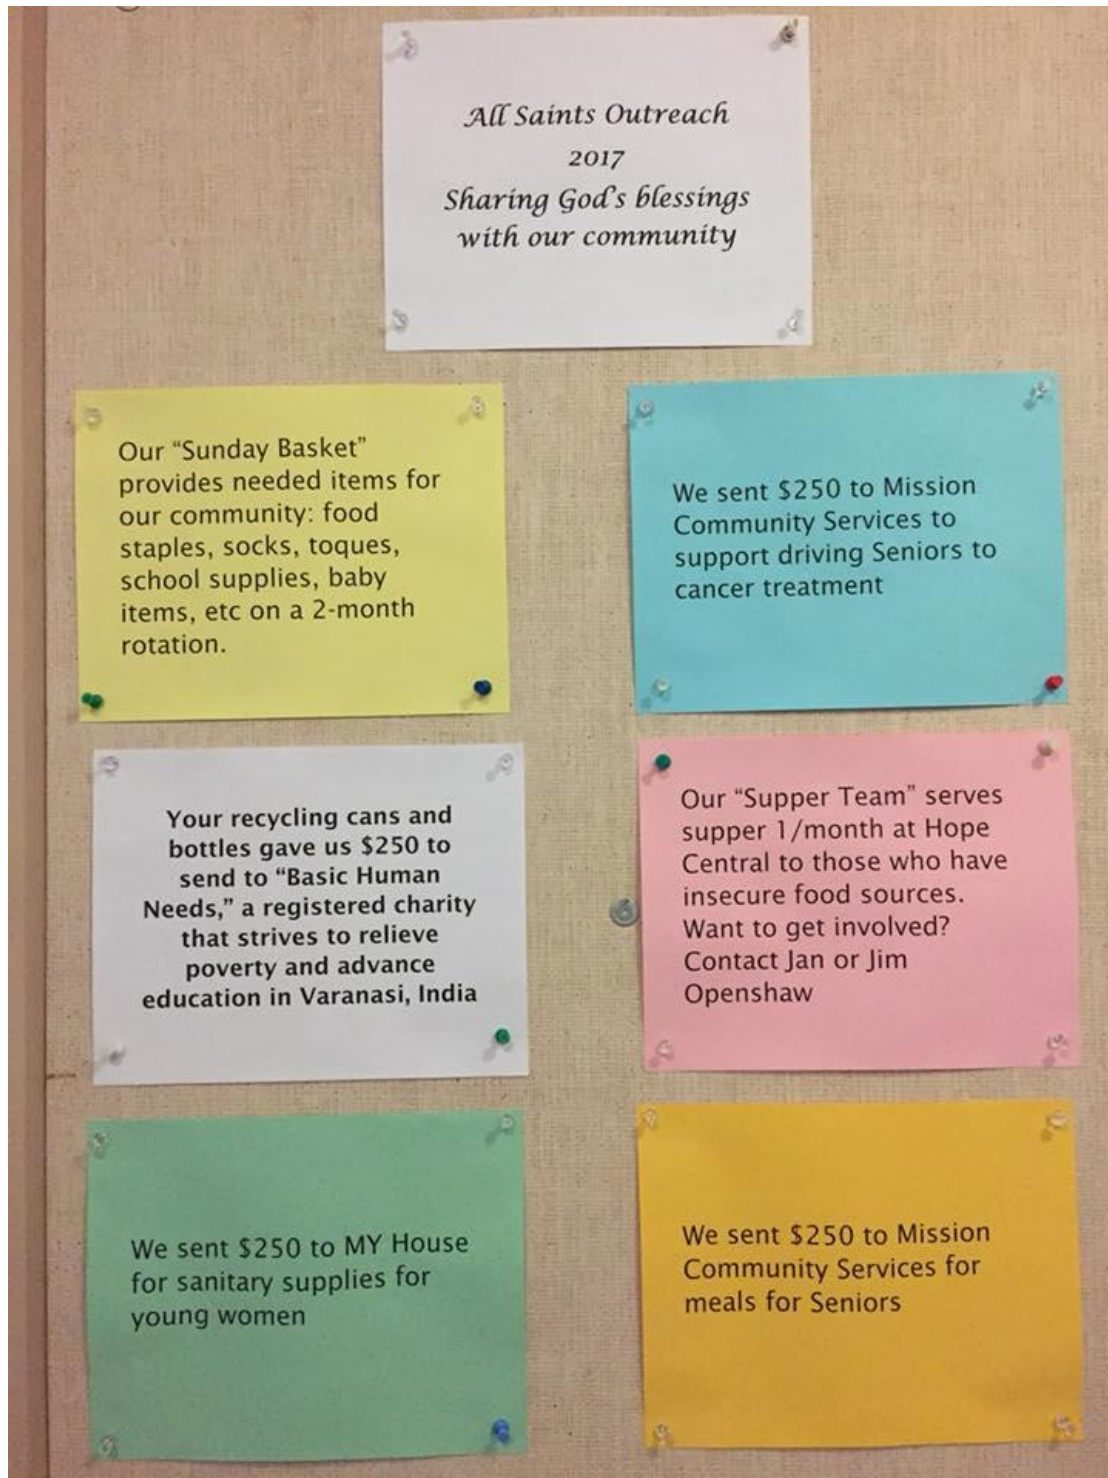 All Saints Outreach
2017
Sharing God's blessings
with our community
Our “Sunday Basket”
provides needed items for
our community: food
staples, socks, toques,
school supplies, baby
items, etc on a 2-month
rotation.
We sent $250 to Mission
Community Services to
support driving Seniors to
cancer treatment
Your recycling cans and
bottles gave us $250 to
send to “Basic Human
Needs,” a registered charity
that strives to relieve
poverty and advance
education in Varanasi, India
Our “Supper Team” serves
supper 1/month at Hope
Central to those who have
insecure food sources.
Want to get involved?
Contact Jan or Jim
Openshaw
We sent $250 to MY House
for sanitary supplies for
young women
We sent $250 to Mission
Community Services for
meals for Seniors